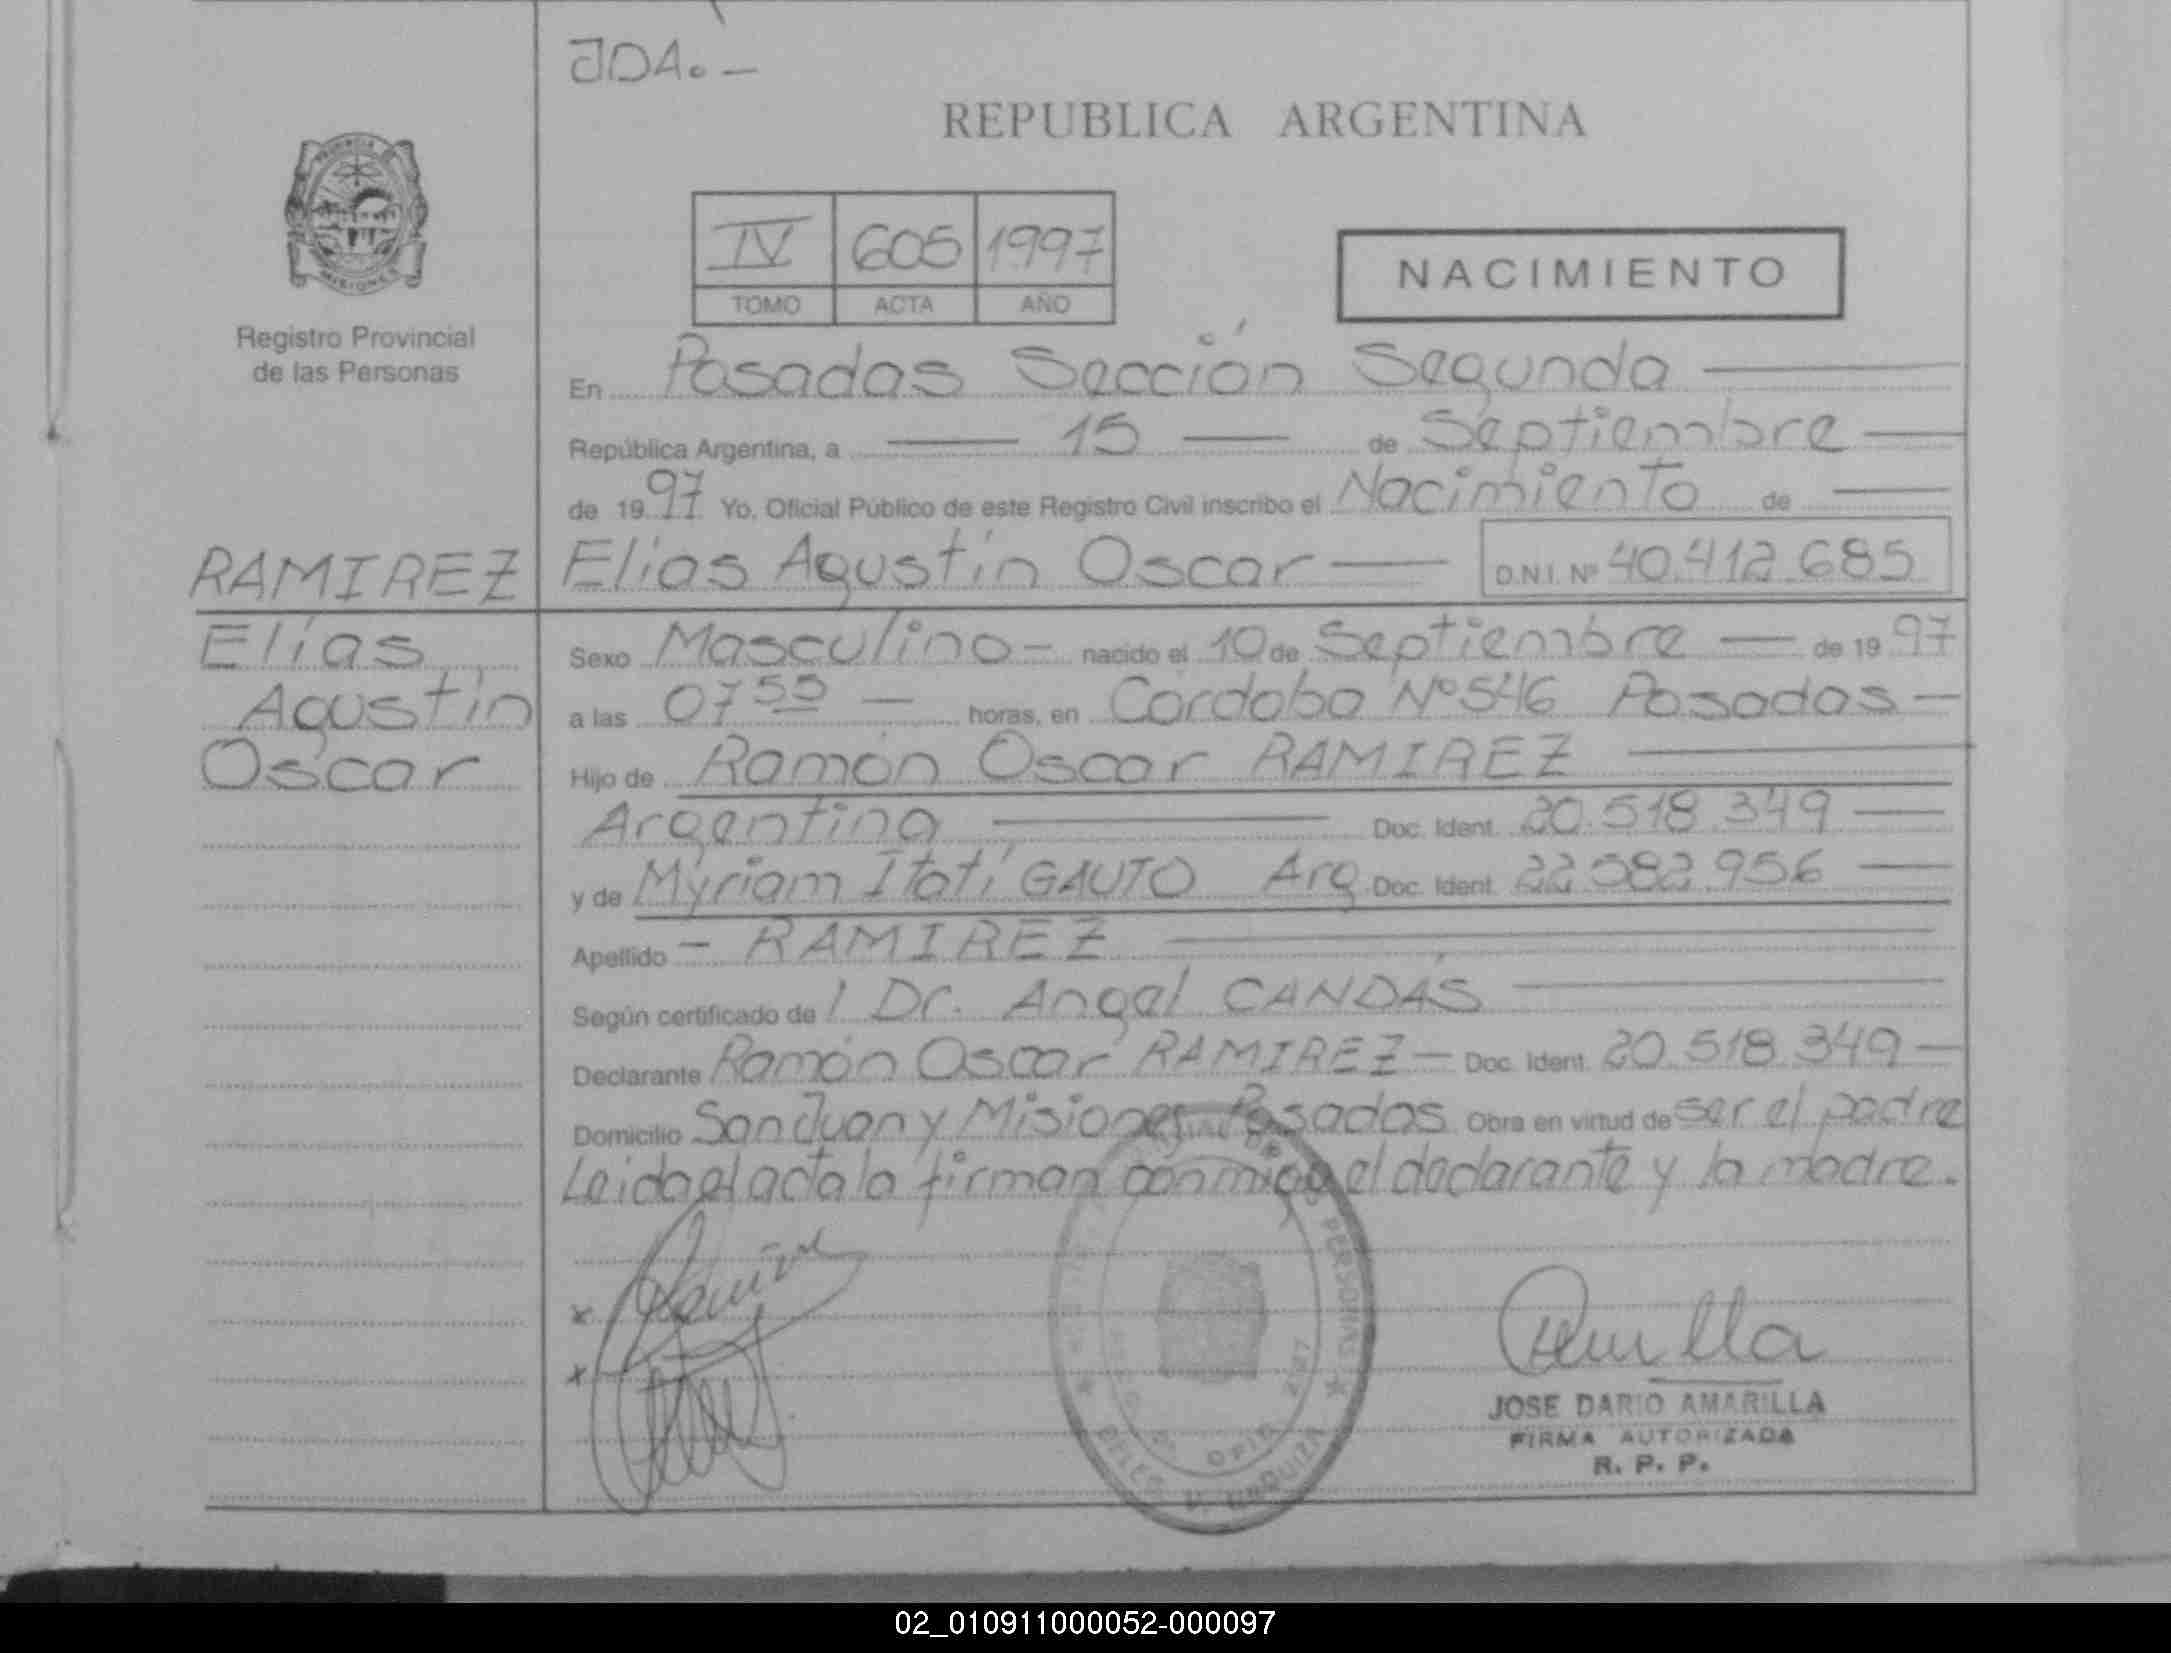 JDA.-
REPUBLICA ARGENTINA
PROVINCIA
MISIONES
Registro Provincial
de las Personas
IV 605 1997
TOMO ACTA AÑO
NACIMIENTO
En Posadas Sección Segunda
República Argentina, a 15 de Septiembre
de 1997 Yo, Oficial Público de este Registro Civil inscribo el Nacimiento de
RAMIREZ
Elías
Agustín
Oscar
Elías Agustín Oscar D.N.I. Nº 40.412.685
Sexo Masculino- nacido el 10 de Septiembre de 1997
a las 07 55 horas, en Córdoba Nº 546 Posadas-
Hijo de Ramón Oscar RAMIREZ
Argentina Doc. Ident. 20.518.349
y de Myriam Itatí GAUTO Arg Doc. Ident. 22.582.956
Apellido - RAMIREZ
Según certificado de Dr. Angel CANDÁS
Declarante Ramón Oscar RAMIREZ- Doc. Ident. 20.518.349-
Domicilio San Juan y Misiones Posadas Obra en virtud de ser el padre
Leida el acta la firman conmigo el declarante y la madre.
x
x
PERSONAS
JOSE DARIO AMARILLA
FIRMA AUTORIZADA
R. P. P.
02_010911000052-000097